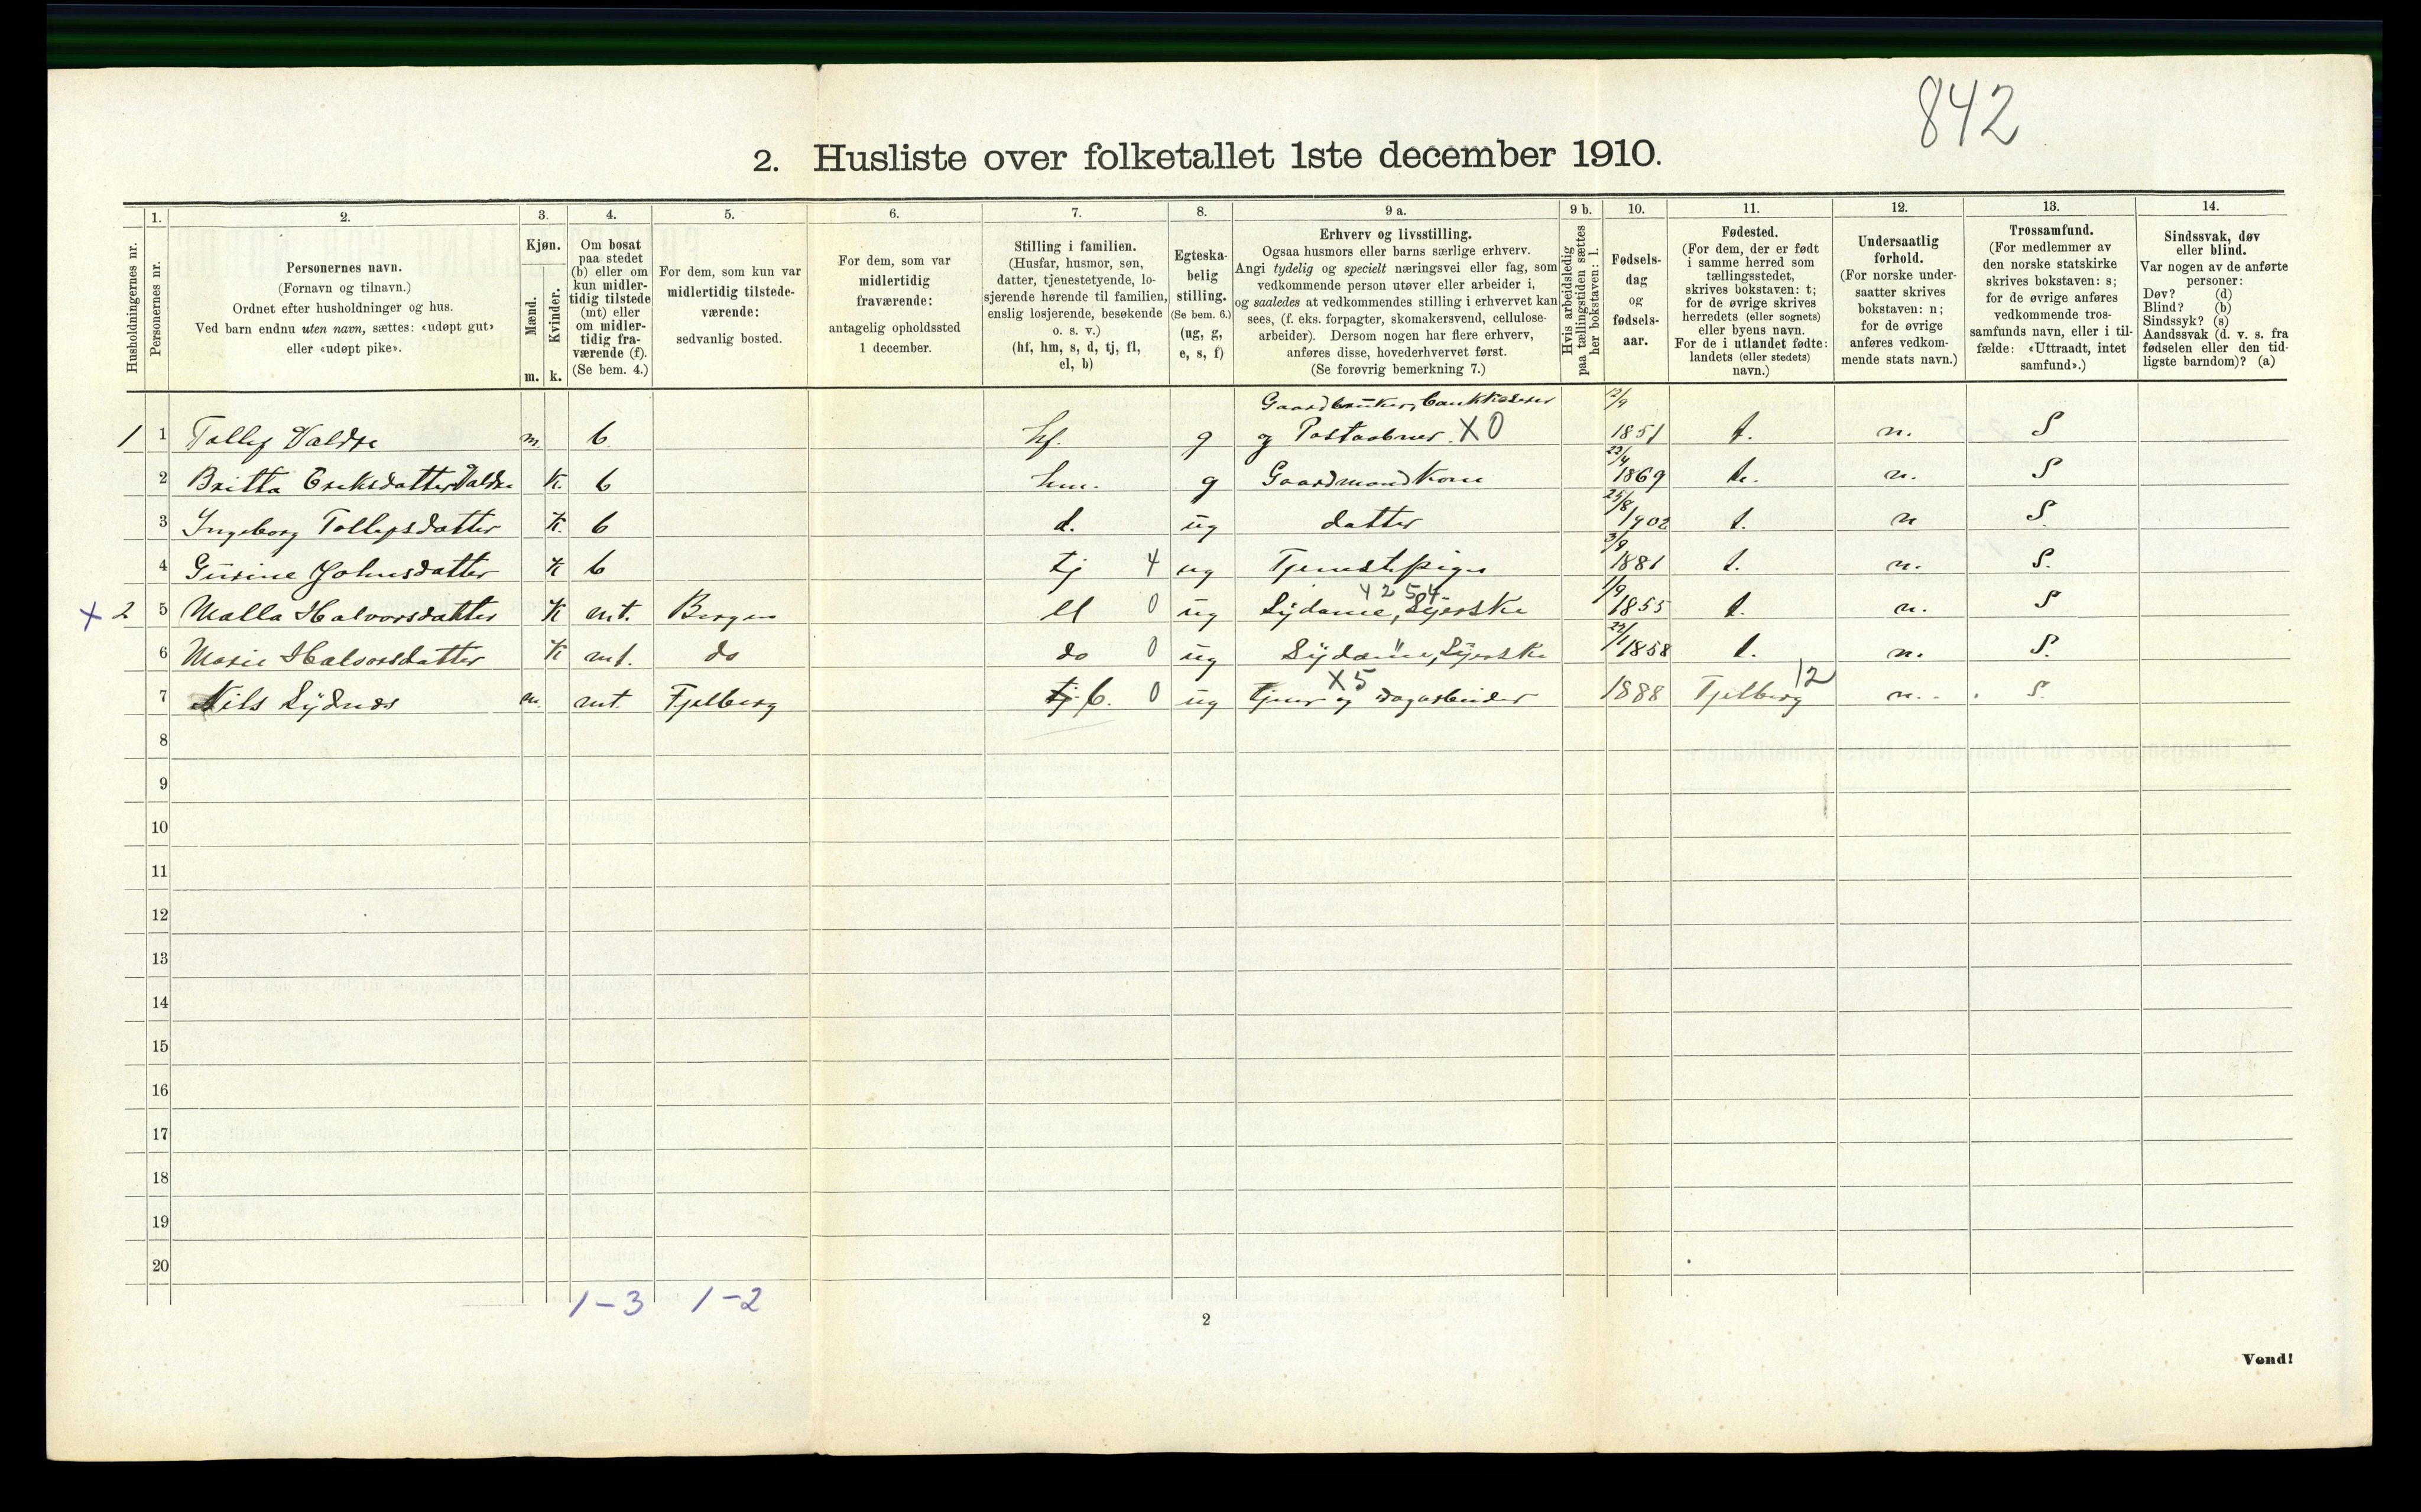 842
2. Husliste over folketallet 1ste december 1910.
Husholdningernes nr.
1.
Personernes nr.
2.
Personernes navn.
(Fornavn og tilnavn.)
Ordnet efter husholdninger og hus.
Ved barn endnu uten navn, sættes: «udøpt gut»
eller «udøpt pike».
3.
Kjøn.
Mænd.
Kvinder.
m. k.
4.
Om bosat
paa stedet
(b) eller om
kun midler-
tidig tilstede
(mt) eller
om midler-
tidig fra-
værende (f).
(Se bem. 4.)
5.
For dem, som kun var
midlertidig tilstede-
værende:
sedvanlig bosted.
6.
For dem, som var
midlertidig
fraværende:
antagelig opholdssted
1 december.
7.
Stilling i familien.
(Husfar, husmor, søn,
datter, tjenestetyende, lo-
sjerende hørende til familien,
enslig losjerende, besøkende
o. s. v.)
(hf, hm, s, d, tj, fl,
el, b)
8.
Egteska-
belig
stilling.
(Se bem. 6.)
(ug, g,
e, s, f)
9 a.
Erhverv og livsstilling.
Ogsaa husmors eller barns særlige erhverv.
Angi tydelig og specielt næringsvei eller fag, som
vedkommende person utøver eller arbeider i,
og saaledes at vedkommendes stilling i erhvervet kan
sees, (f. eks. forpagter, skomakersvend, cellulose-
arbeider). Dersom nogen har flere erhverv,
anføres disse, hovederhvervet først.
(Se forøvrig bemerkning 7.)
9 b.
Hvis arbeidsledig
paa tællingstiden sættes
her bokstaven: l.
10.
Fødsels-
dag
og
fødsels-
aar.
11.
Fødested.
(For dem, der er født
i samme herred som
tællingsstedet,
skrives bokstaven: t;
for de øvrige skrives
herredets (eller sognets)
eller byens navn.
For de i utlandet fødte:
landets (eller stedets)
navn.)
12.
Undersaatlig
forhold.
(For norske under-
saatter skrives
bokstaven: n;
for de øvrige
anføres vedkom-
mende stats navn.)
13.
Trossamfund.
(For medlemmer av
den norske statskirke
skrives bokstaven: s;
for de øvrige anføres
vedkommende tros-
samfunds navn, eller i til-
fælde: «Uttraadt, intet
samfund».)
14.
Sindssvak, døv
eller blind.
Var nogen av de anførte
personer:
Døv? (d)
Blind? (b)
Sindssyk? (s)
Aandssvak (d. v. s. fra
fødselen eller den tid-
ligste barndom)? (a)
Gaardbruker, bankkasserer 12/9
1 1 Tollef Valdre m. b hf. g og Postaabner X0 1851 t. n. S
2 Britta Eriksdatter Valdre k. b hm. g Gaardmandkone 22/4 1869 t. n. S
3 Ingeborg Tollefsdatter k. b d. ug datter 25/8 1902 t. n S.
4 Gurine Johnsdatter k b tj 4 ug Tjenestepige 3/9 1881 t. n. S.
X 2 5 Malla Halvorsdatter k mt. Bergen el 0 ug Sydame, Syerske 4254 1/9 1855 t. n. S
6 Marie Halvorsdatter k mt. do do 0 ug Sydame, Syerske " 22/1 1858 t. n. S.
7 Nils Sydnes m. mt. Fjelberg tj b. 0 ug tjener og dagarbeider X5 1888 Fjelberg 12 n. S.
8
9
10
11
12
13
14
15
16
17
18
19
20
1-3 1-2
2
Vend!